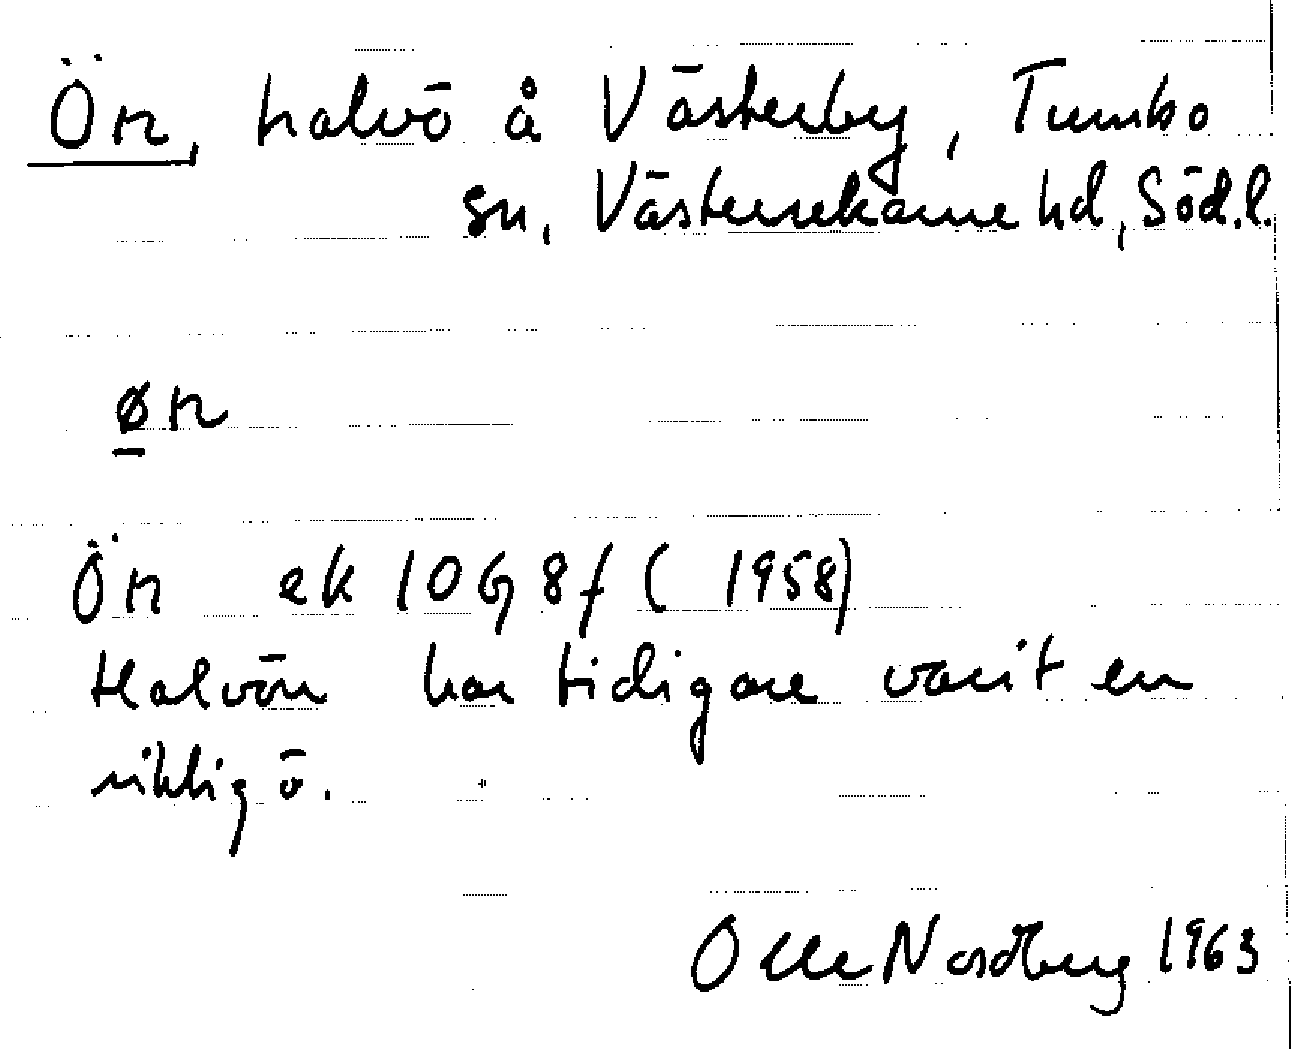 Ön, halvö å Västerby, Tumbo
sn, Västerrekarne hd, Söd.l.
øn
Ön ek 10G 8f (1958)
Halvön har tidigare varit en
riktig ö.
Olle Nordberg 1963